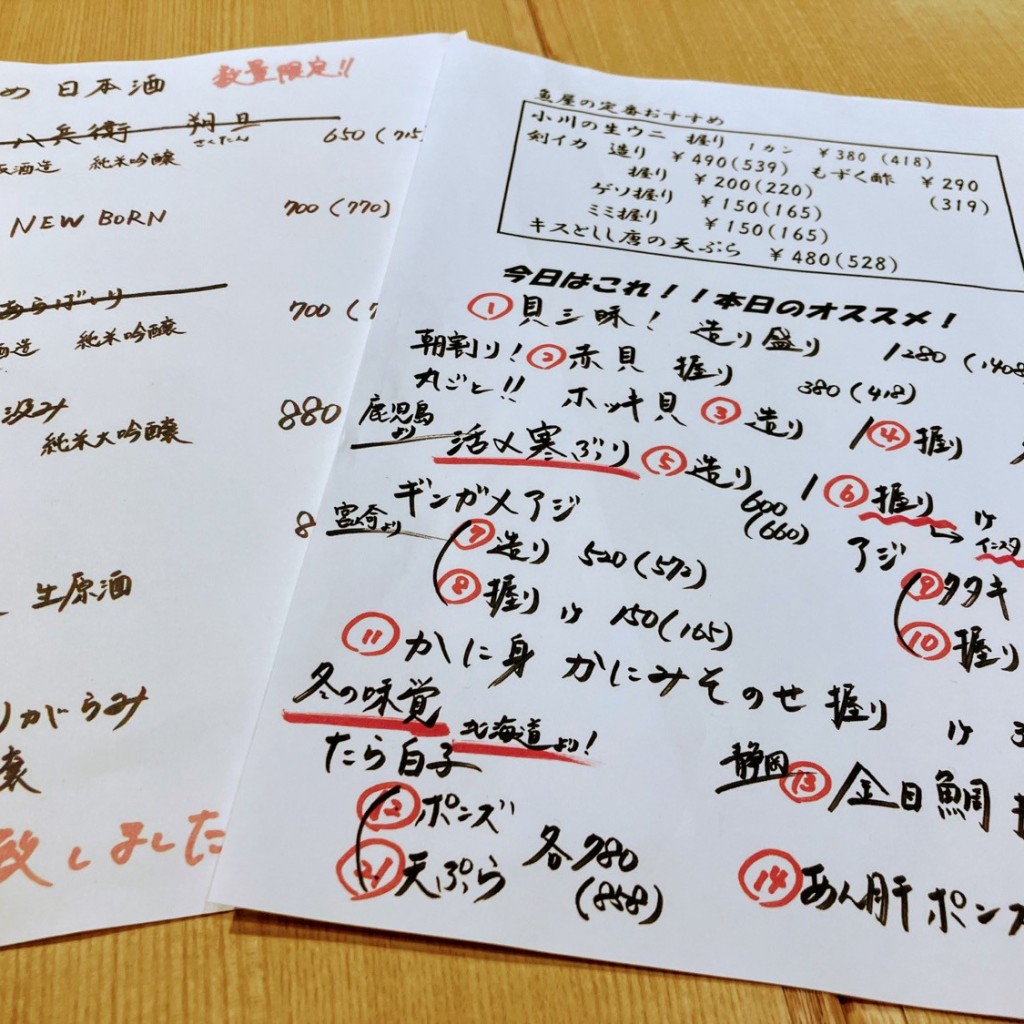 め 日本酒 数量限定!!
八兵衛 朔旦 650 (715
さくたん
酒造 純米吟醸
NEW BORN 700 (770)
あらばしり 700 (7
酒造 純米吟醸
汲み 880
純米大吟醸
8
生原酒
りがらみ
醸
致しました
魚屋の定番おすすめ
小川の生ウニ 握り 1カン ¥380 (418)
剣イカ 造り ¥490(539) もずく酢 ¥290
握り ¥200(220) (319)
ゲソ握り ¥150(165)
ミミ握り ¥150(165)
キスとしし唐の天ぷら ¥480(528)
今日はこれ!!本日のオススメ!
① 貝三味! 造り盛り 1280 (1408
朝割り! ② 赤貝 握り 380 (418)
丸ごと!! ホッキ貝 ③ 造り ④ 握り
鹿児島より 活〆寒ぶり ⑤ 造り 600 (660) ⑥ 握り 1ケ
インスタ
宮崎より ギンガメアジ アジ
⑦ 造り 520 (572) ⑨ タタキ
⑧ 握り 1ケ 150 (165) ⑩ 握り
⑪ かに身 かにみそのせ 握り 1ケ 3
冬の味覚 北海道より!
たら白子 静岡 ⑬ 金目鯛
⑫ ポンズ 各780
㉑ 天ぷら (858) ⑭ あん肝ポンズ